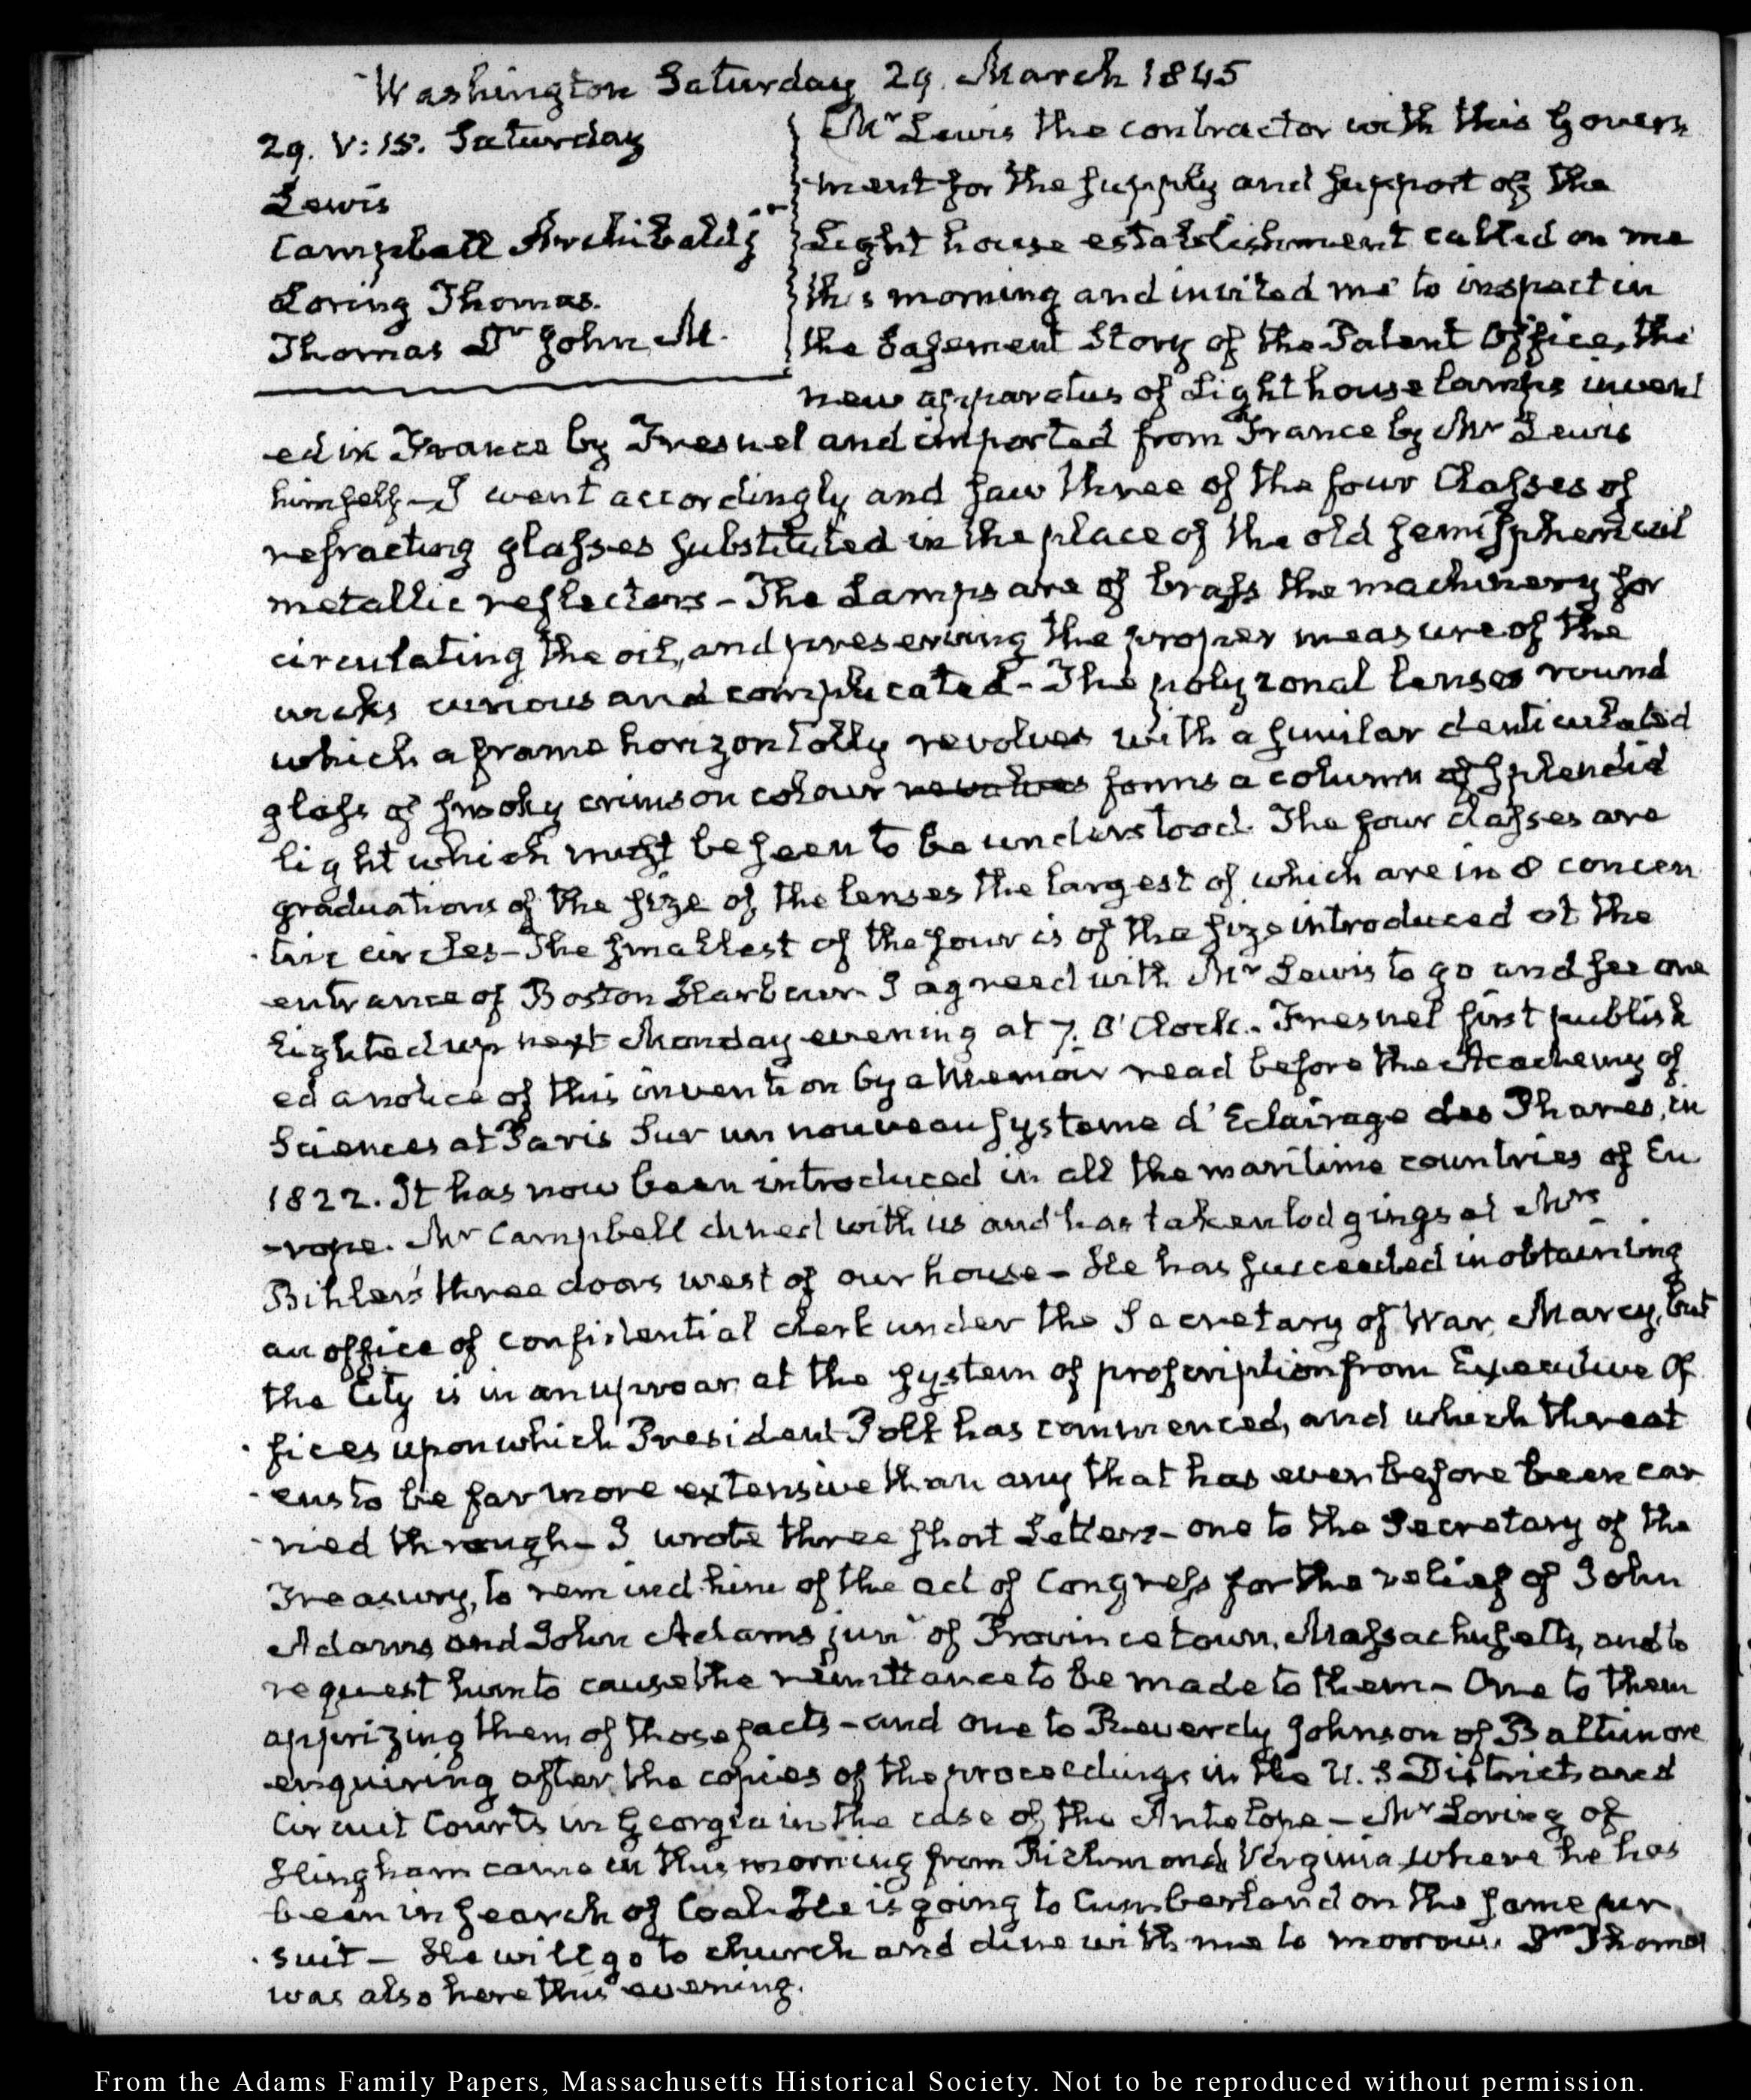 Washington Saturday 29. March 1845
29. V:15. Saturday
Lewis
Campbell Archibald
Loring Thomas.
Thomas Dr John M.
Mr Lewis the contractor with this Govern
ment for the supply and support of the
Light house establishment called on me
this morning and invited me to inspect in
the basement Story of the Patent Office, the
new apparatus of Light house lamps invent
ed in France by Fresnel and imported from France by Mr Lewis
himself—I went accordingly and saw three of the four Classes of
refracting glasses substituted in the place of the old hemispherical
metallic reflectors—The Lamps are of brass the machinery for
circulating the oil, and preserving the proper measure of the
wicks curious and complicated—The polyzonal lenses round
which a frame horizontally revolves with a similar denticulated
glass of smoky crimson colour revolves forms a column of splendid
light which must be seen to be understood. The four classes are
graduations of the size of the lenses the largest of which are in 8 concen
tric circles—The smallest of the four is of the size introduced at the
entrance of Boston Harbour. I agreed with Mr Lewis to go and see one
lighted up next Monday evening at 7. O'Clock.—Fresnel first publish
ed a notice of this invention by a Memoir read before the Academy of
Sciences at Paris Sur un nouveau systeme d'Eclairage des Phares, in
1822. It has now been introduced in all the maritime countries of Eu
-rope. Mr Campbell dined with us and has taken lodgings at Mrs
Bihler's three doors west of our house—He has succeeded in obtaining
an office of confidential clerk under the Secretary of War, Marcy, but
the City is in an uproar at the system of proscription from Executive Of
fices upon which President Polk has commenced, and which threat
ens to be far more extensive than any that has ever before been car
ried through—I wrote three short Letters—one to the Secretary of the
Treasury, to remind him of the act of Congress for the relief of John
Adams and John Adams junr of Provincetown, Massachusetts, and to
request him to cause the remittance to be made to them—One to them
apprizing them of those facts—and one to Reverdy Johnson of Baltimore
enquiring after the copies of the proceedings in the U. S District and
Circuit Courts in Georgia in the case of the Antelope—Mr Loring of
Hingham came in this morning from Richmond Virginia where he has
been in search of Coal. He is going to Cumberland on the same pur
suit—He will go to church and dine with me to morrow. Dr Thomas
was also here this evening.
From the Adams Family Papers, Massachusetts Historical Society. Not to be reproduced without permission.